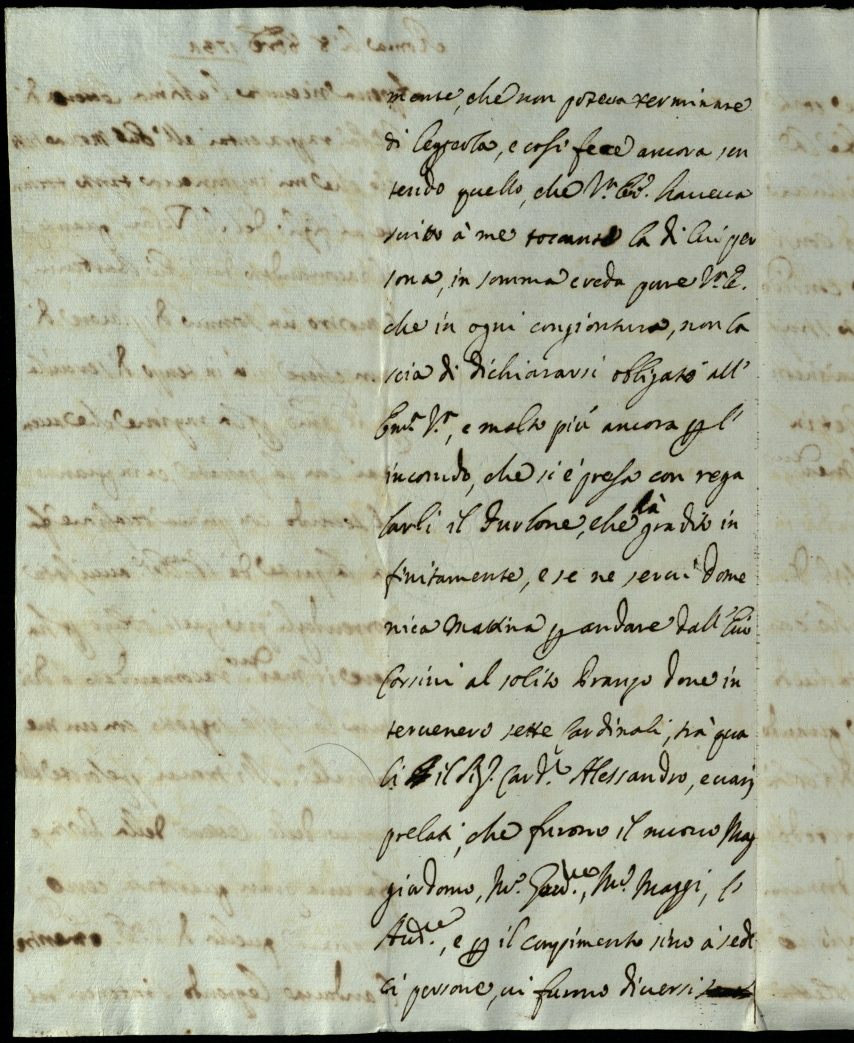 mente, che non poteva terminare
di leggerla, e così fece ancora sen
tendo quello, che V.ra E. haveva
scritto à me toccante la di lui per
sona, in somma creda pure V.E.
che in ogni congiontura, non la
scia di dichiararsi obligato all'
Em.a V.ra, e molto più ancora p l'
incomodo, che si è presa con rega
larli il Turbone, che là gradito in
finitamente, e se ne servì Dome
nica Mattina p andare dall'Em.o
Corsini al solito Pranzo dove in
tervenero sette Cardinali, trà qua
li il Sig. Card.le Alessandro, e varij
prelati, che furono il nuovo Mag
giordomo, M.r M.r Maggi, l'
Aud.re, e p il compimento sino à sedi
ci persone, vi furno diversi